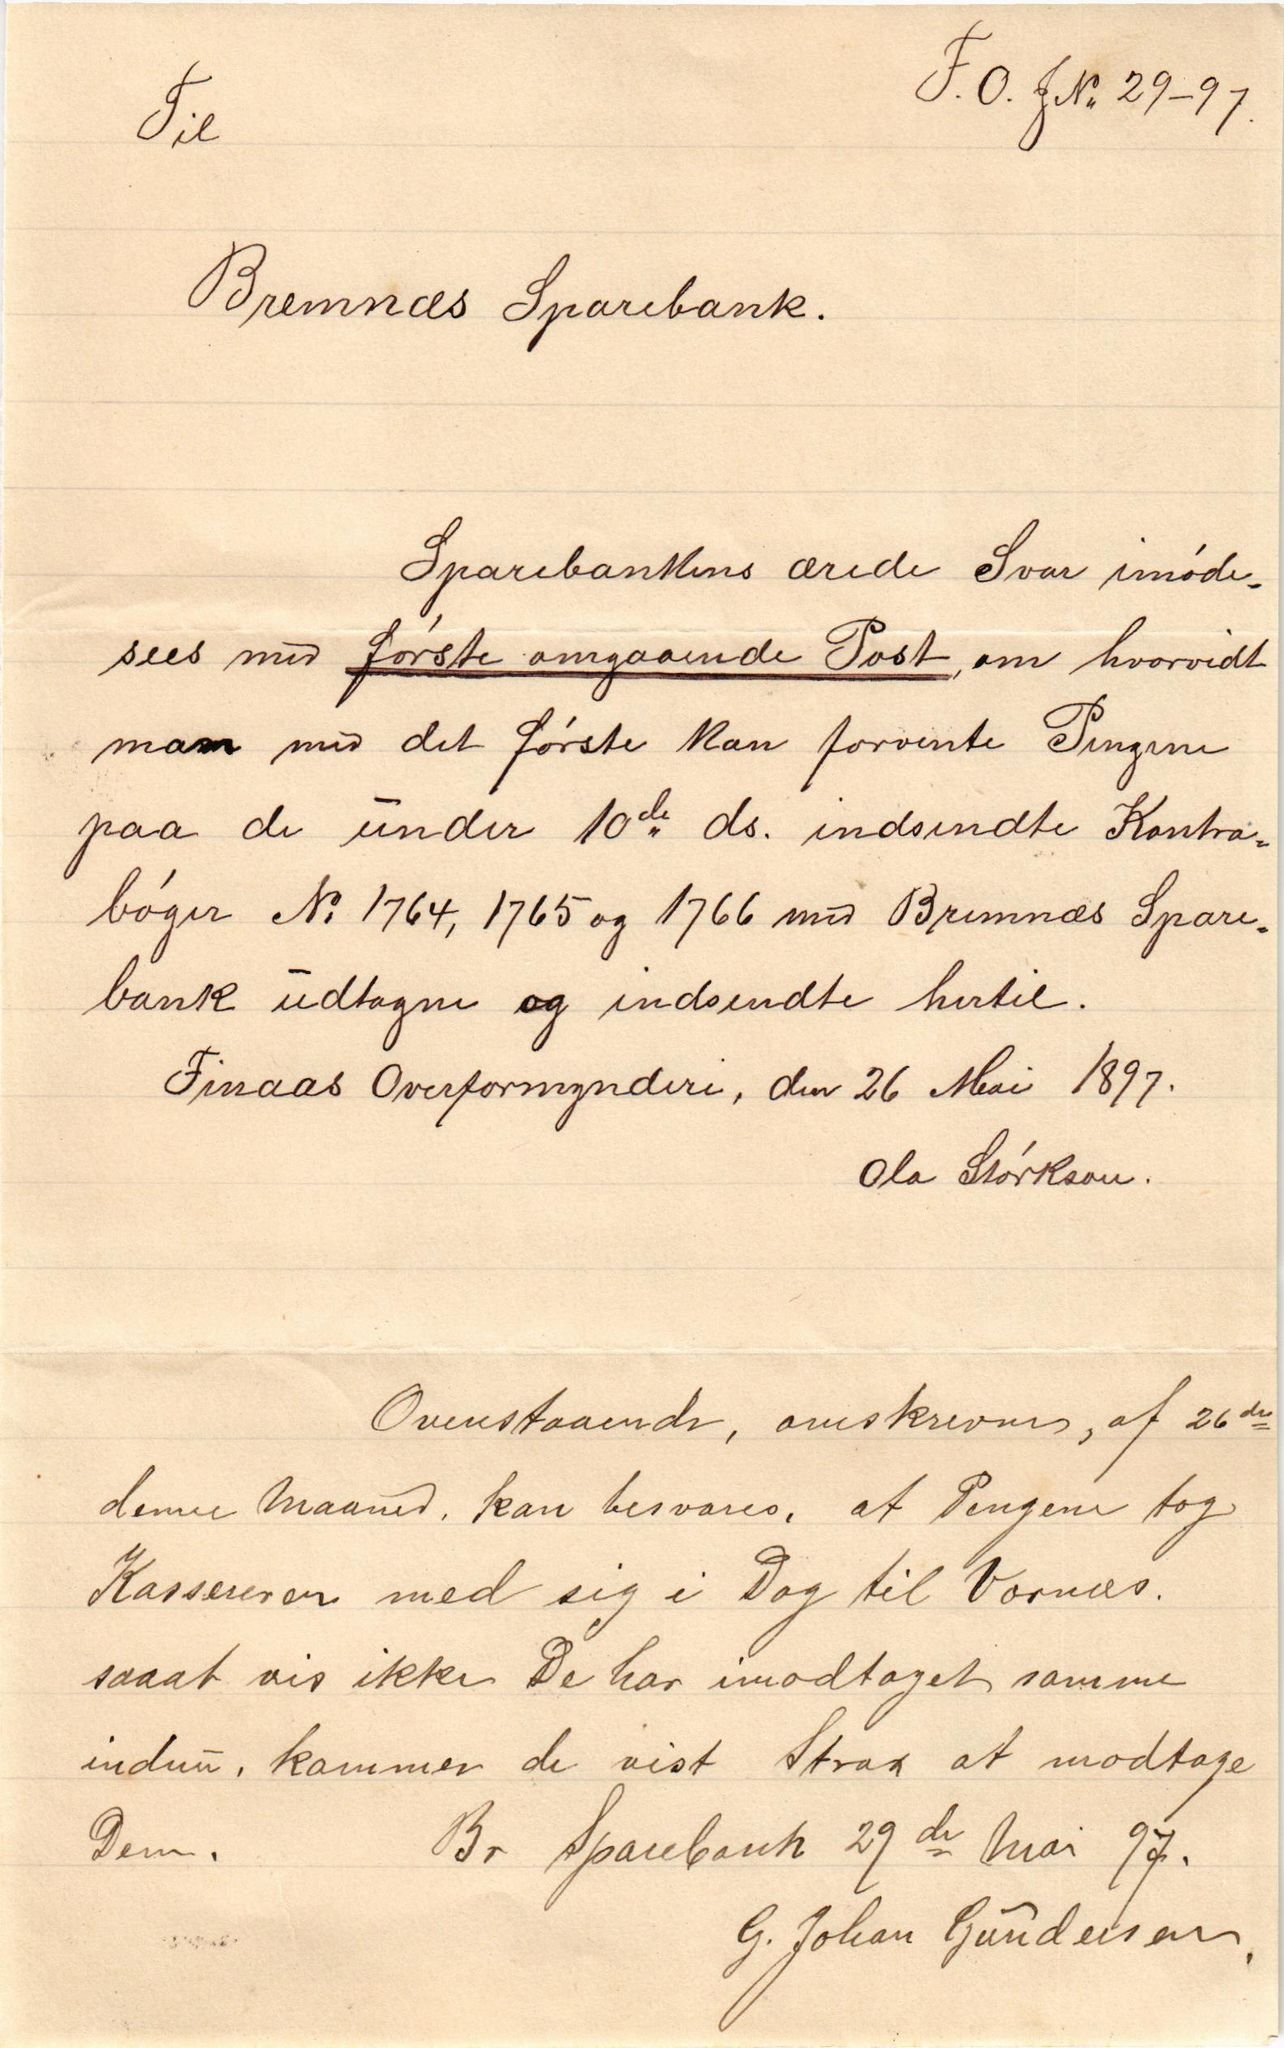 F. O. J No. 29-97.
Til
Bremnæs Sparebank.
Sparebankens ærede Svar imóde-
sees med fórste omgaaende Post, om hvorvidt
man med det fórste kan forvente Pengene
paa de under 10de ds. indsendte Kontra-
bóger No. 1764, 1765 og 1766 med Bremnæs Spare-
bank udtagne og indsendte hertil.
Finaas Overformynderi, den 26 Mai 1897.
Ola Stórkson.
Ovenstaaende, omskrevne, af 26de
denne Maaned, kan besvares, at Pengene tog
Kassereren med sig i Dag til Vornæs.
saaat vis ikke De har imodtaget samme
indnu, kommer de vist Strax at modtage
Dem. Br Sparebank 29de Mai 97.
G. Johan Gundersen.